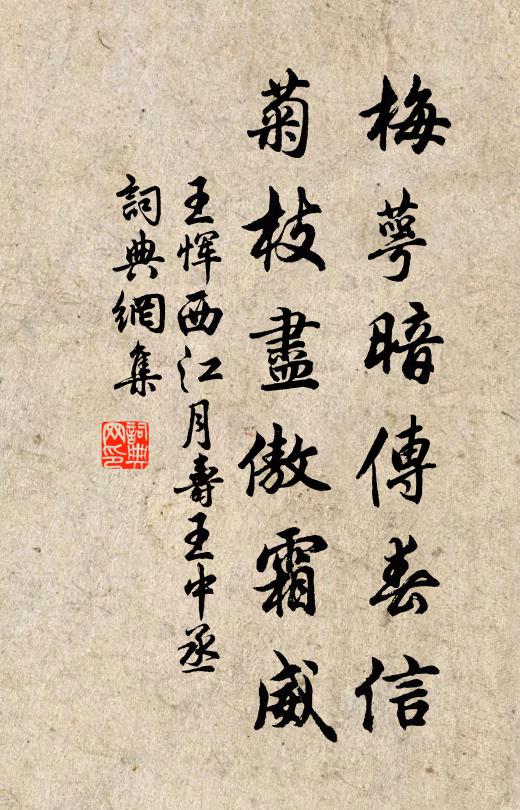 梅萼暗傳春信
菊枝盡傲霜威
王惲西江月壽王中丞
詞典網集
詞典網印